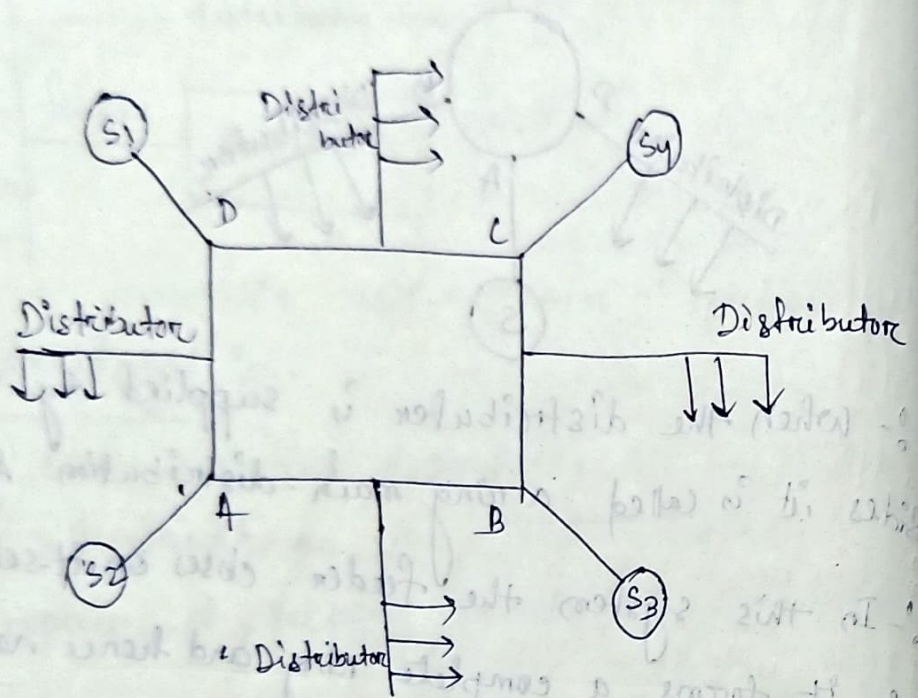 Distri
butor
S1
S4
D
C
Distributor
Distributor
A
B
S2
S3
Distributor